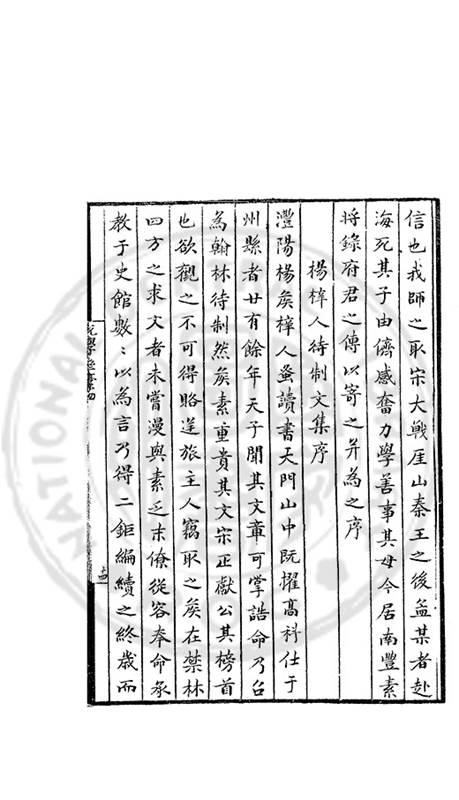 信也我師之取宋大戰厓山秦王之後孟某者赴
海死其子由儕感奮力學善事其母今居南豐素
將錄府君之傳以寄之并為之序
楊梓人待制文集序
灃陽楊矦梓人蚤讀書天門山中既擢高科仕于
州縣者廿有餘年天子聞其文章可掌誥命乃召
為翰林待制然矦素重貴其文宋正獻公其榜首
也欲觀之不可得賂逆旅主人竊取之矦在禁林
四方之求文者未嘗漫與素乏末僚從容奉命承
教于史館數〻以為言乃得二鉅編續之終歲而
NATIONAL